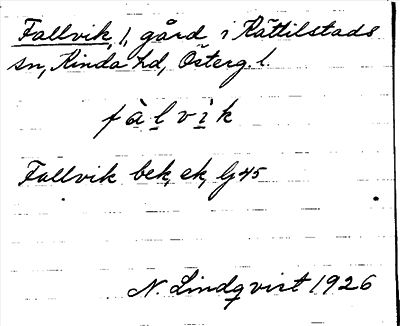 Fallvik, 1, gård i Kättilstads
sn, Kinda hd, Österg. l.
fàlvìk
Fallvik bek, ek, lj 45
N. Lindqvist 1926